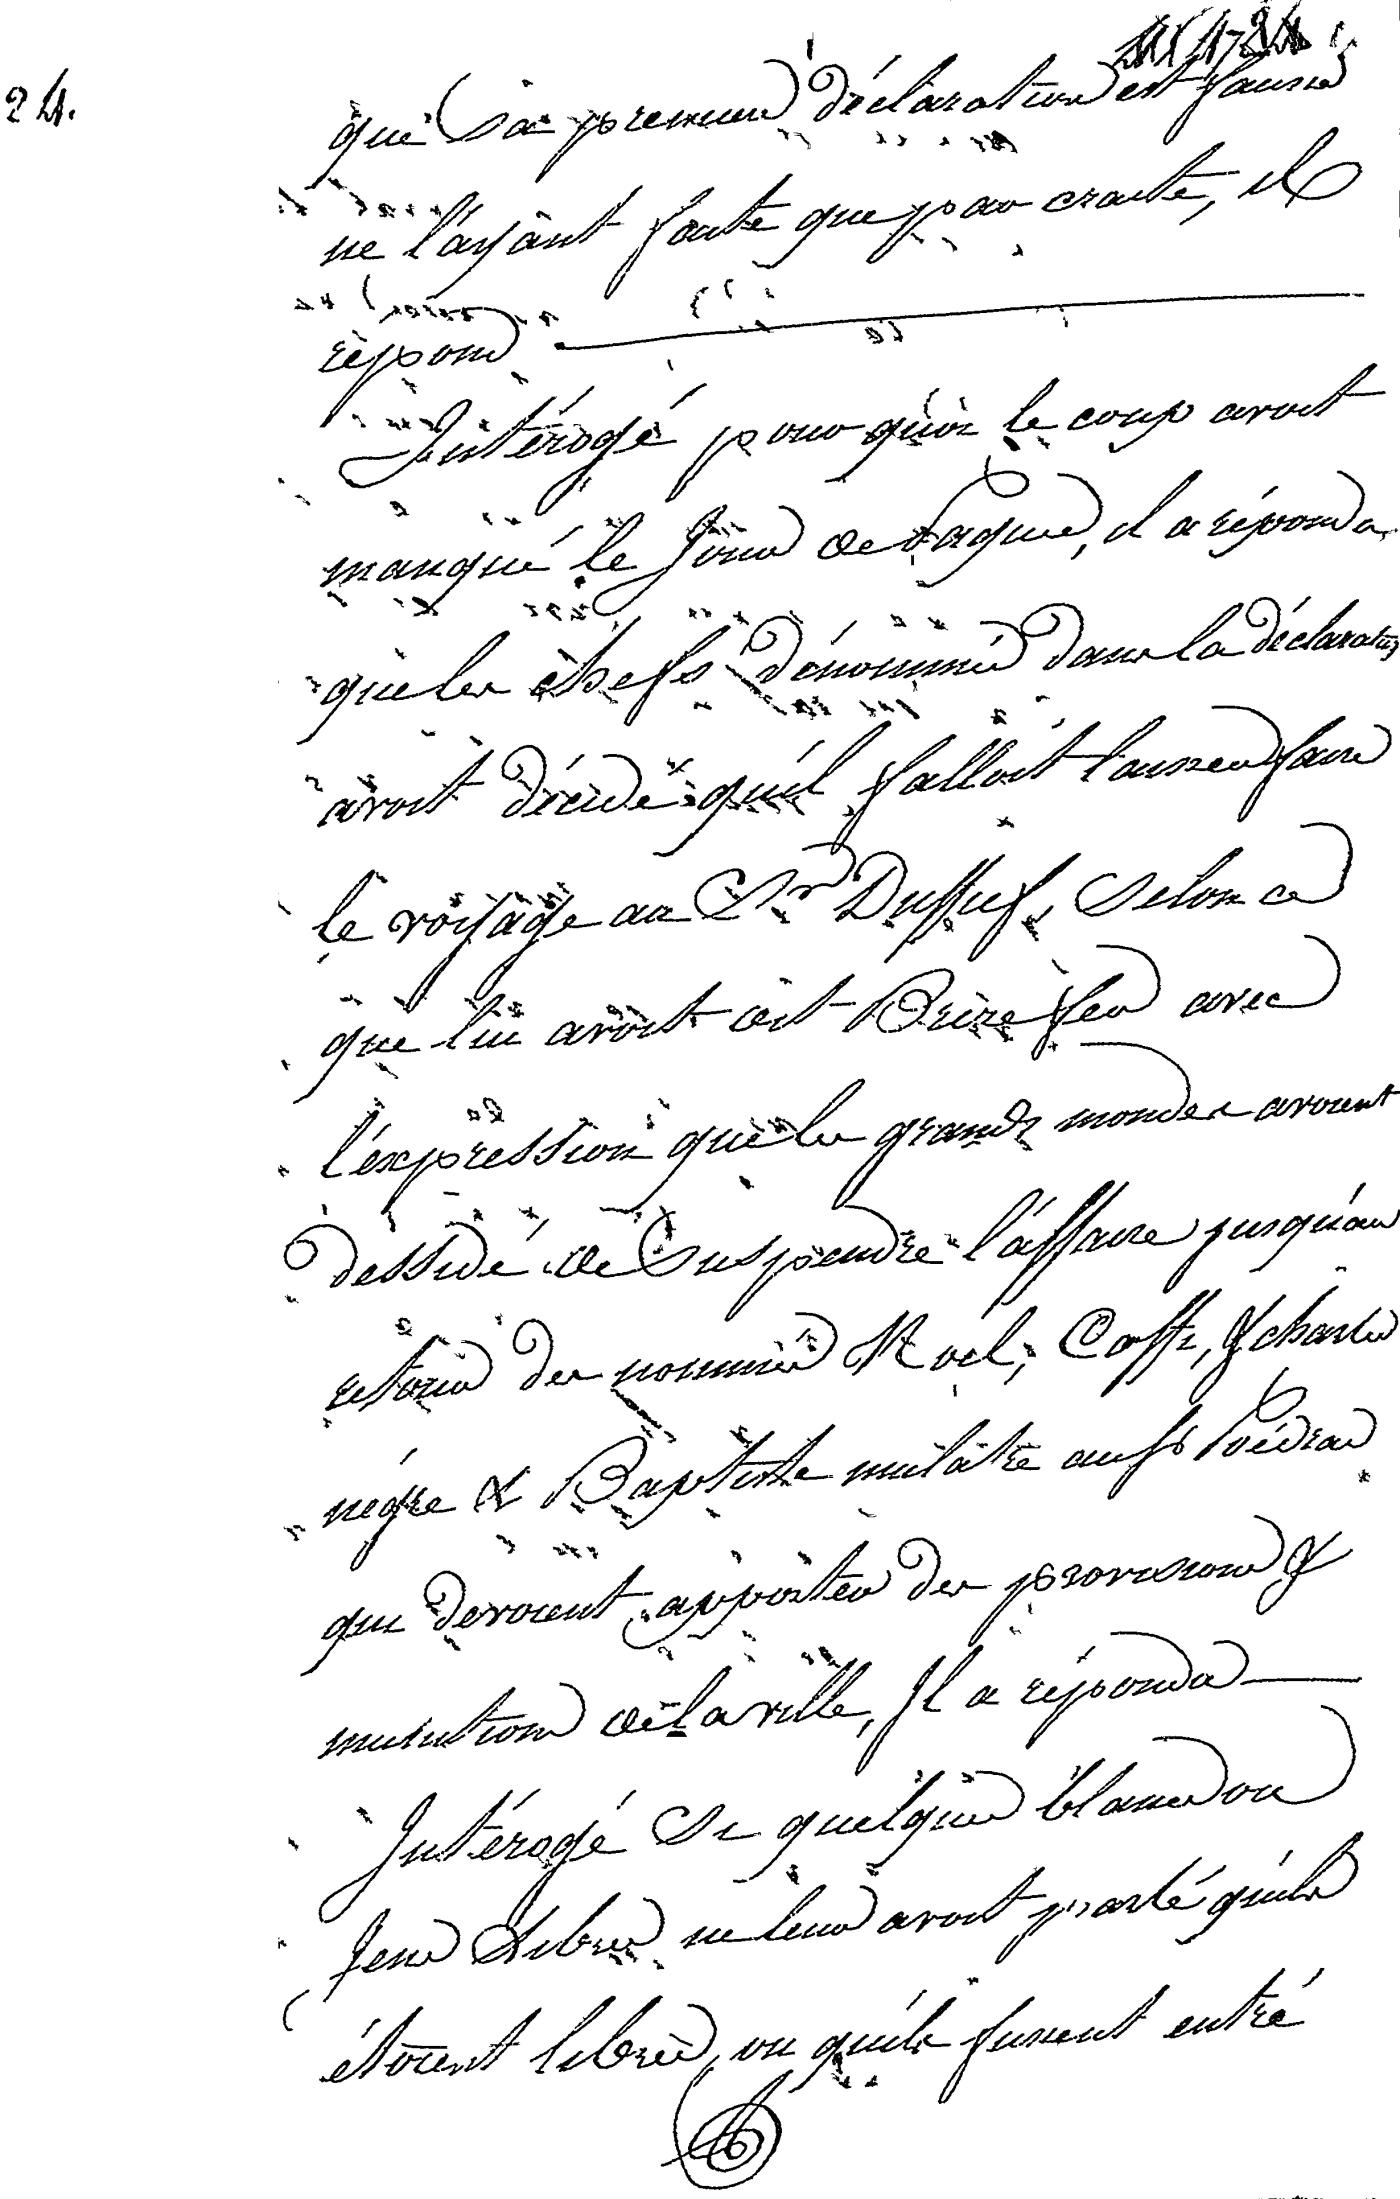 24.
que sa premiere déclaration est fausse
ne l'ayant faite que par crainte, il
répond
Intérogé pour quoi le coup avoit
manqué le Jour de Paques, il a répondu
que les chefs dénommés dans la déclaration
avoit décidé qu'il falloit laisser faire
le voyage au Sr Dussuf, selon ce
que lui avoit dit Brizefer avec
l'éxpression que les grands mondes avoient
desside de suspendre l'affaire jusqu'au
retour des nommés Noël, Coffi, & charles
négre & Baptiste mulâtre aussi Poëdras
qui devoient apporter des provisions &
munitions de la ville, Il a répondu
Intérogé si quelques blancs ou
Jens Libres ne leur avoit parlé qu'ils
étoient libres, ou qu'ils fussent entré